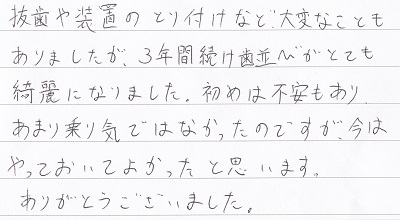 抜歯や装置のとり付けなど、大変なことも
ありましたが、3年間続け歯並びがとても
綺麗になりました。初めは不安もあり、
あまり乗り気ではなかったのですが、今は
やっておいてよかったと思います。
ありがとうございました。